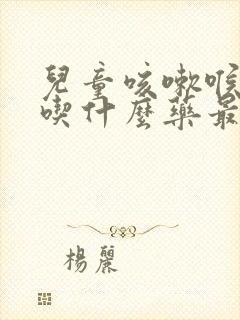 兒童咳嗽喉
喫什麼藥最
楊麗